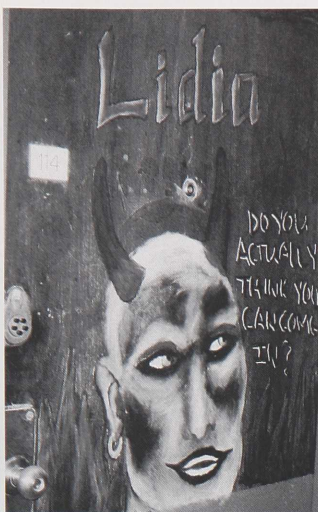 Lidia
114
DO YOU
ACTUALLY
THINK YOU
CAN COME
IN?